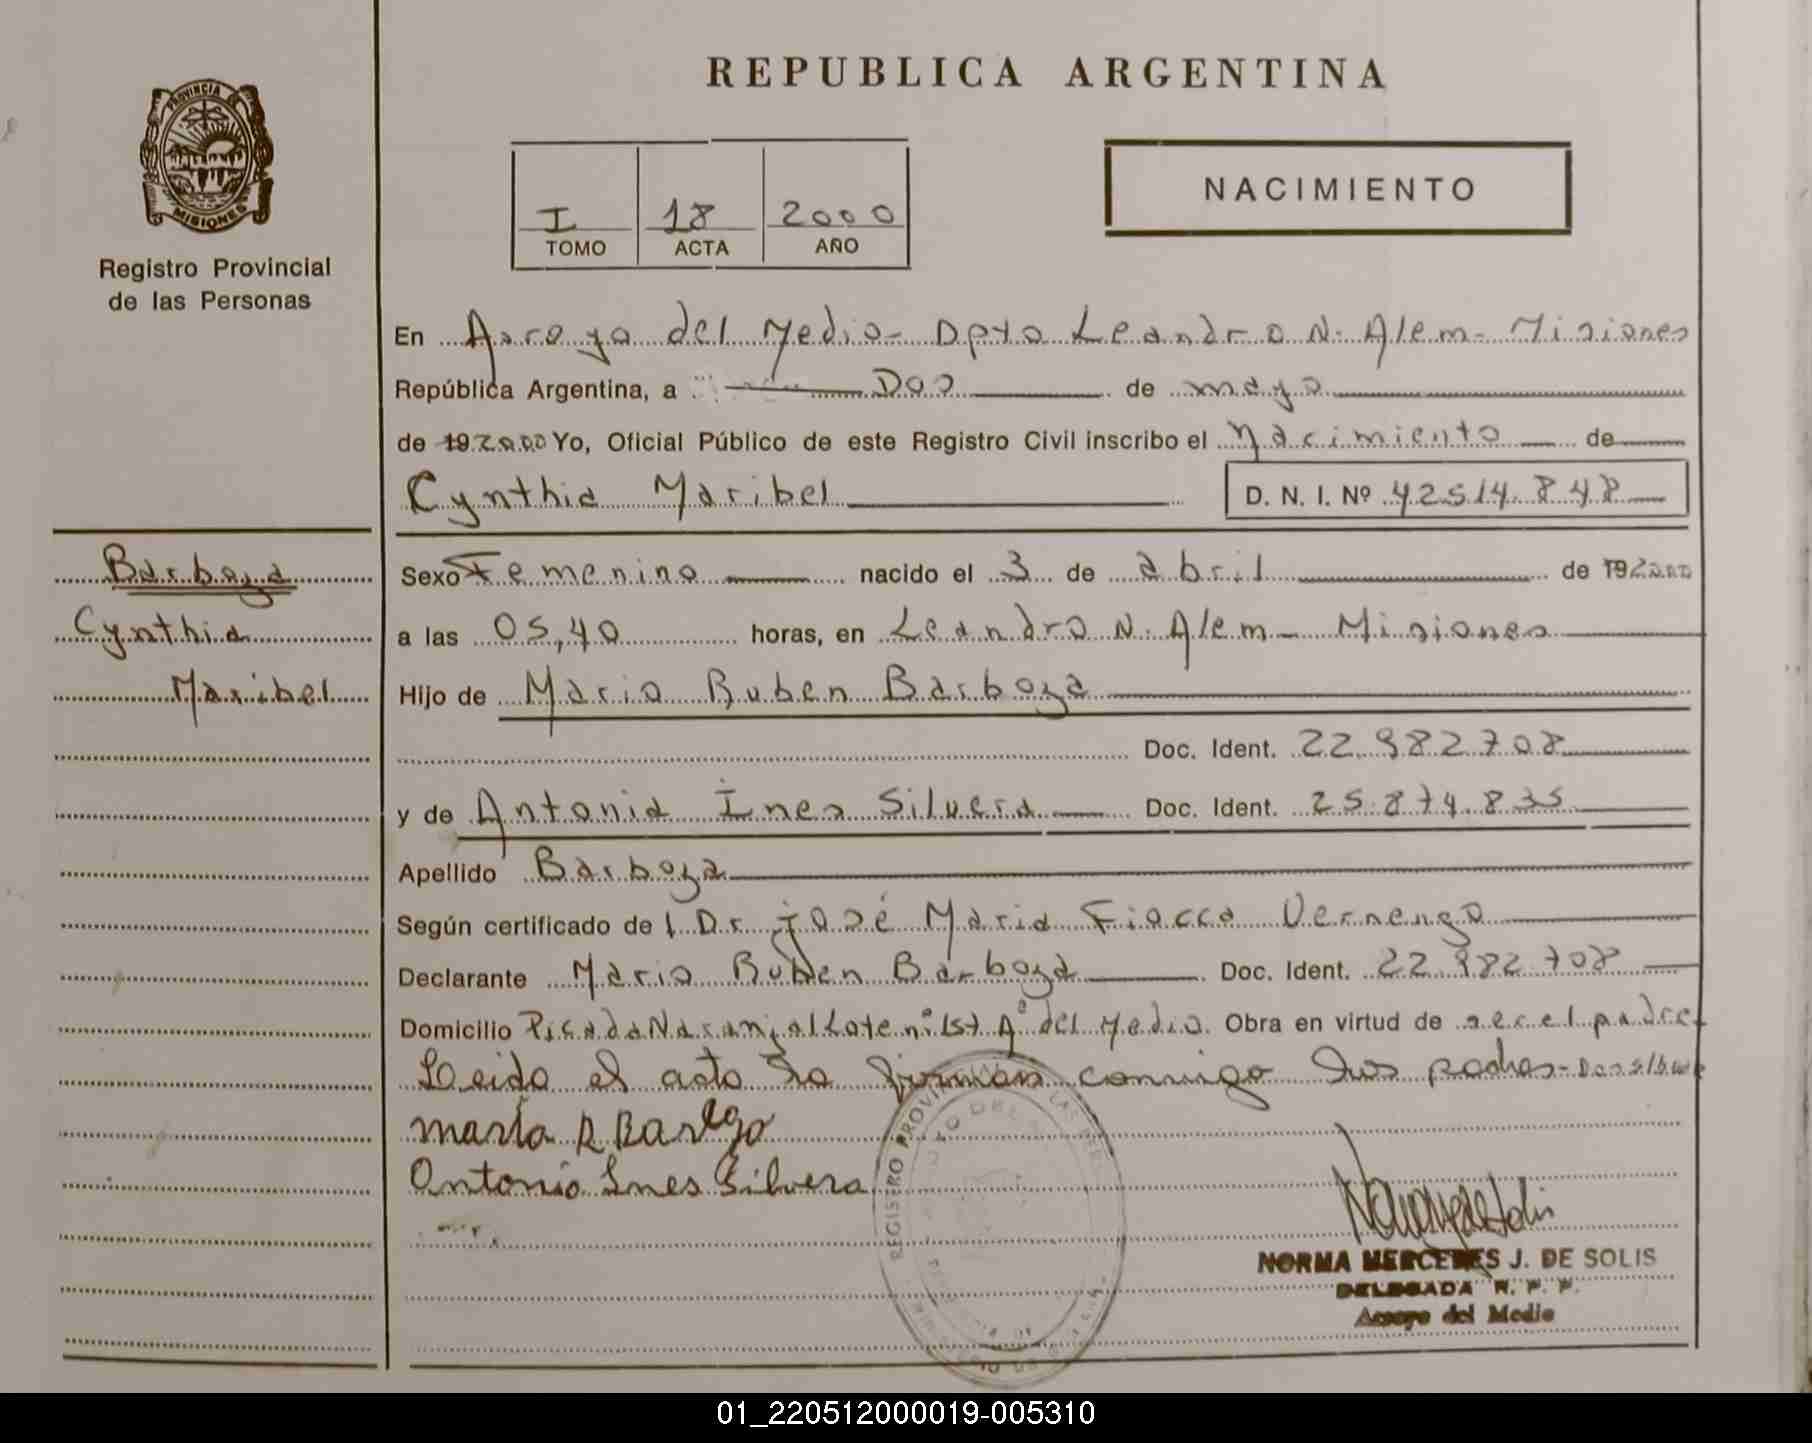 REPUBLICA ARGENTINA
PROVINCIA DE
MISIONES
Registro Provincial
de las Personas
I 18 2000
TOMO ACTA AÑO
NACIMIENTO
En Arroyo del Medio - Dpto Leandro N. Alem - Misiones
República Argentina, a Dos de mayo
de 192000 Yo, Oficial Público de este Registro Civil inscribo el Nacimiento de
Cynthia Maribel D. N. I. Nº 42514.848
Barboza
Cynthia
Maribel
Sexo Femenino nacido el 3 de abril de 192000
a las 05,40 horas, en Leandro N. Alem - Misiones
Hijo de Mario Ruben Barboza
Doc. Ident. 22.982708
y de Antonia Ines Silvera Doc. Ident. 25.874.835
Apellido Barboza
Según certificado de l Dr. José Maria Fiocco Vernengo
Declarante Mario Ruben Barboza Doc. Ident. 22.982.708
Domicilio Picada Naranjal Lote nº 157 Aº del Medio. Obra en virtud de ser el padre
Leido el acta la firman conmigo sus padres -
mario R Barboza
Antonia Ines Silvera
REGISTRO PROVINCIAL DE LAS
NORMA MERCEDES J. DE SOLIS
DELEGADA R. P. P.
Arroyo del Medio
01_220512000019-005310